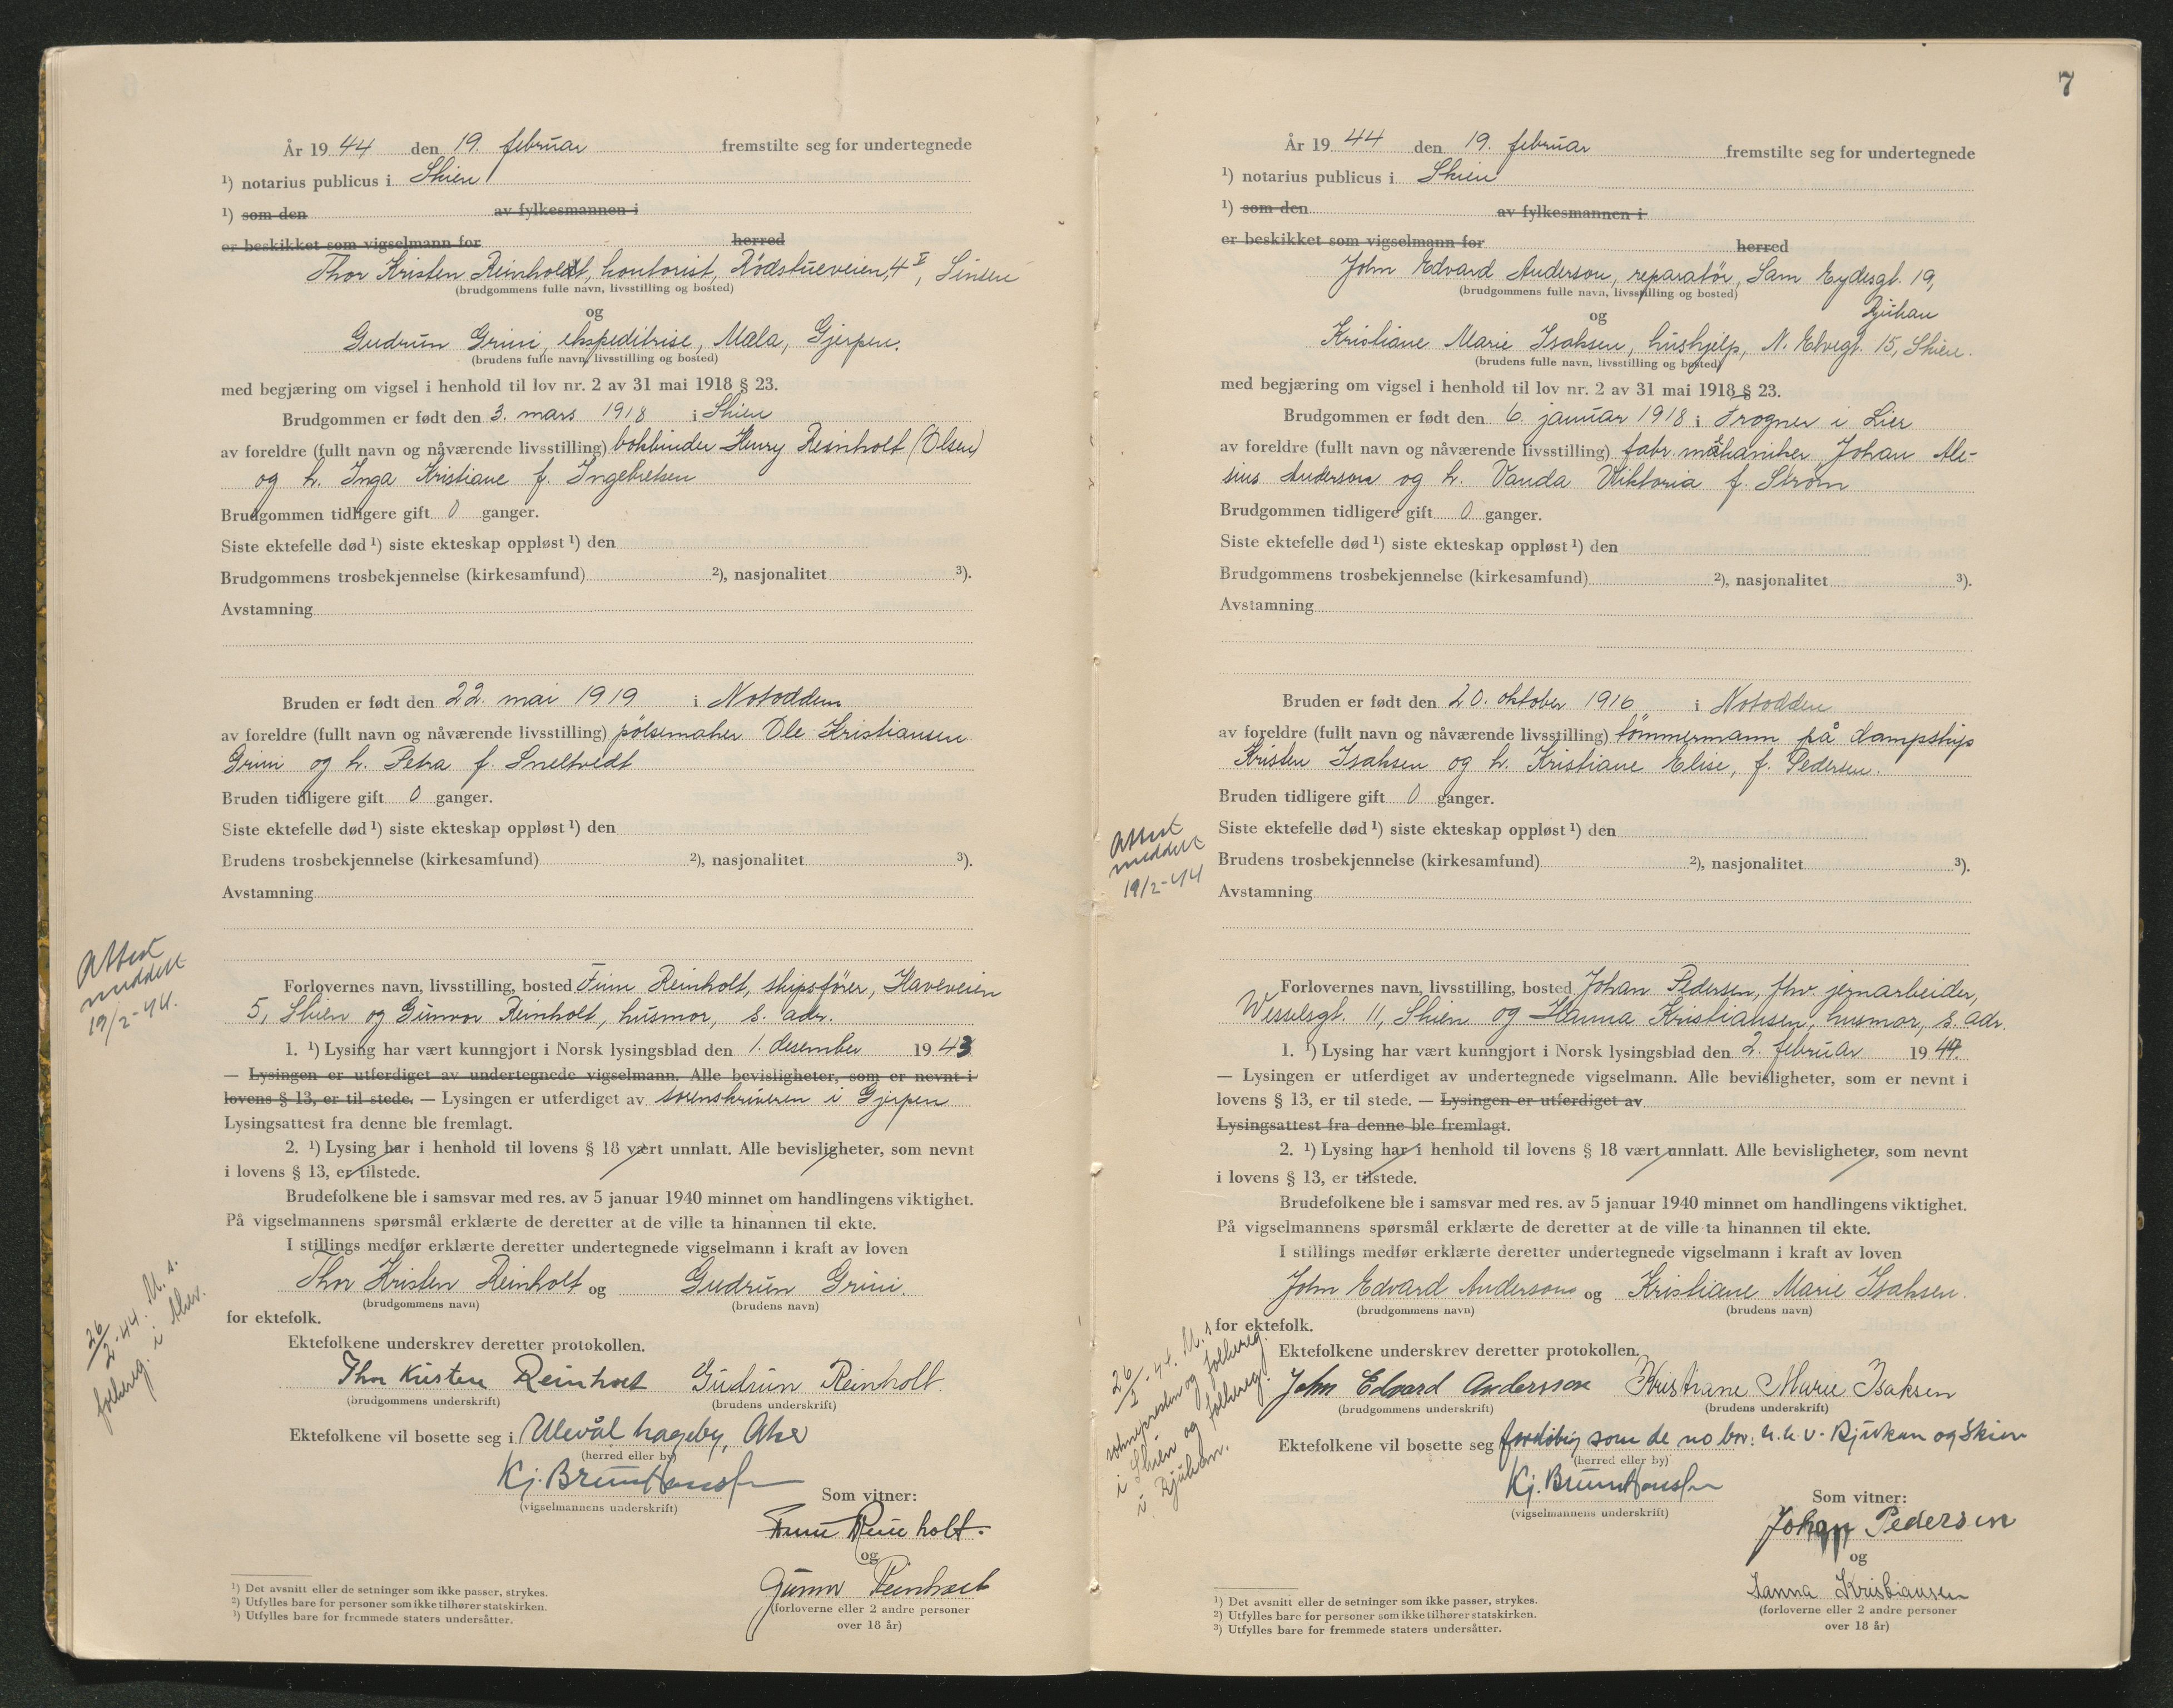 År 19 44 den 19. februar fremstilte seg for undertegnede
¹) notarius publicus i Skien
¹) som den av fylkesmannen i
er beskikket som vigselmann for herred
Thor Kristen Reinholt, kontorist, Rödstuveien 4 II, Sinsen
(brudgommens fulle navn, livsstilling og bosted)
og
Gudrun Grini, ekspeditrise, Mæla, Gjerpen.
(brudens fulle navn, livsstilling og bosted)
med begjæring om vigsel i henhold til lov nr. 2 av 31 mai 1918 § 23.
Brudgommen er født den 3. mars 1918 i Skien
av foreldre (fullt navn og nåværende livsstilling) bokbinder Henry Reinholt (Olsen)
og h. Inga Kristiane f. Ingebretsen
Brudgommen tidligere gift 0 ganger.
Siste ektefelle død ¹) siste ekteskap oppløst ¹) den
Brudgommens trosbekjennelse (kirkesamfund) ²), nasjonalitet ³).
Avstamning
Bruden er født den 22. mai 1919 i Notodden
av foreldre (fullt navn og nåværende livsstilling) pölsemaker Ole Kristiansen
Grini og h. Petra f. Sneltvedt
Bruden tidligere gift 0 ganger.
Siste ektefelle død ¹) siste ekteskap oppløst ¹) den
Brudens trosbekjennelse (kirkesamfund) ²), nasjonalitet ³).
Avstamning
Attest
meddelt
19/2-44.
Forlovernes navn, livsstilling, bosted Finn Reinholt, skipsförer, Haveveien
5, Skien og Gunvor Reinholt, husmor, s. adr.
1. ¹) Lysing har vært kunngjort i Norsk lysingsblad den 1. desember 19 43
— Lysingen er utferdiget av undertegnede vigselmann. Alle bevisligheter, som er nevnt i
lovens § 13, er til stede. — Lysingen er utferdiget av sorenskriveren i Gjerpen
Lysingsattest fra denne ble fremlagt.
2. ¹) Lysing har i henhold til lovens § 18 vært unnlatt. Alle bevisligheter, som nevnt
i lovens § 13, er tilstede.
Brudefolkene ble i samsvar med res. av 5 januar 1940 minnet om handlingens viktighet.
På vigselmannens spørsmål erklærte de deretter at de ville ta hinannen til ekte.
I stillings medfør erklærte deretter undertegnede vigselmann i kraft av loven
Thor Kristen Reinholt og Gudrun Grini.
(brudgommens navn) (brudens navn)
for ektefolk.
26/2-44. M. s.
folkereg. i Aker.
Ektefolkene underskrev deretter protokollen.
Thor Kristen Reinholt Gudrun Reinholt.
(brudgommens underskrift) (brudens underskrift)
Ektefolkene vil bosette seg i Ulevål hageby, Aker
(herred eller by)
Kj. Brun Hanssen
(vigselmannens underskrift)
Som vitner:
Finn Reinholt.
og
Gunvor Reinholt
(forloverne eller 2 andre personer
over 18 år)
¹) Det avsnitt eller de setninger som ikke passer, strykes.
²) Utfylles bare for personer som ikke tilhører statskirken.
³) Utfylles bare for fremmede staters undersåtter.
7
År 19 44 den 19. februar fremstilte seg for undertegnede
¹) notarius publicus i Skien
¹) som den av fylkesmannen i
er beskikket som vigselmann for herred
John Edvard Anderson, reparatör, Sam Eydesgt. 19,
(brudgommens fulle navn, livsstilling og bosted)
og Rjukan
Kristiane Marie Isaksen, hushjelp, N. Elvegt. 15, Skien.
(brudens fulle navn, livsstilling og bosted)
med begjæring om vigsel i henhold til lov nr. 2 av 31 mai 1918 § 23.
Brudgommen er født den 6. januar 1918 i Frogner i Lier
av foreldre (fullt navn og nåværende livsstilling) fabr. mekaniker Johan Ale-
sius Anderson og h. Vanda Viktoria f. Ström
Brudgommen tidligere gift 0 ganger.
Siste ektefelle død ¹) siste ekteskap oppløst ¹) den
Brudgommens trosbekjennelse (kirkesamfund) ²), nasjonalitet ³).
Avstamning
Bruden er født den 20. oktober 1916 i Notodden
av foreldre (fullt navn og nåværende livsstilling) tömmermann på dampskip
Kristen Isaksen og h. Kristiane Elise, f. Pedersen.
Bruden tidligere gift 0 ganger.
Siste ektefelle død ¹) siste ekteskap oppløst ¹) den
Attest
meddelt
19/2-44
Brudens trosbekjennelse (kirkesamfund) ²), nasjonalitet ³).
Avstamning
Forlovernes navn, livsstilling, bosted Johan Pedersen, fhv. jernarbeider,
Wesselsgt. 11, Skien og Hanna Kristiansen, husmor, s. adr.
1. ¹) Lysing har vært kunngjort i Norsk lysingsblad den 2. februar 19 44.
— Lysingen er utferdiget av undertegnede vigselmann. Alle bevisligheter, som er nevnt i
lovens § 13, er til stede. — Lysingen er utferdiget av
Lysingsattest fra denne ble fremlagt.
2. ¹) Lysing har i henhold til lovens § 18 vært unnlatt. Alle bevisligheter, som nevnt
i lovens § 13, er tilstede.
Brudefolkene ble i samsvar med res. av 5 januar 1940 minnet om handlingens viktighet.
På vigselmannens spørsmål erklærte de deretter at de ville ta hinannen til ekte.
I stillings medfør erklærte deretter undertegnede vigselmann i kraft av loven
John Edvard Anderson og Kristiane Marie Isaksen.
(brudgommens navn) (brudens navn)
for ektefolk.
26/2-44. M. s.
sokneprest og folkereg.
i Skien og folkereg.
i Rjukan.
Ektefolkene underskrev deretter protokollen.
John Edvard Andersson Kristiane Marie Isaksen
(brudgommens underskrift) (brudens underskrift)
Ektefolkene vil bosette seg foreløbig som de no bor. h.h.v. Rjukan og Skien
(herred eller by)
Kj. Brun Hanssen
(vigselmannens underskrift)
Som vitner:
Johan Pedersen
og
Hanna Kristiansen
(forloverne eller 2 andre personer
over 18 år)
¹) Det avsnitt eller de setninger som ikke passer, strykes.
²) Utfylles bare for personer som ikke tilhører statskirken.
³) Utfylles bare for fremmede staters undersåtter.